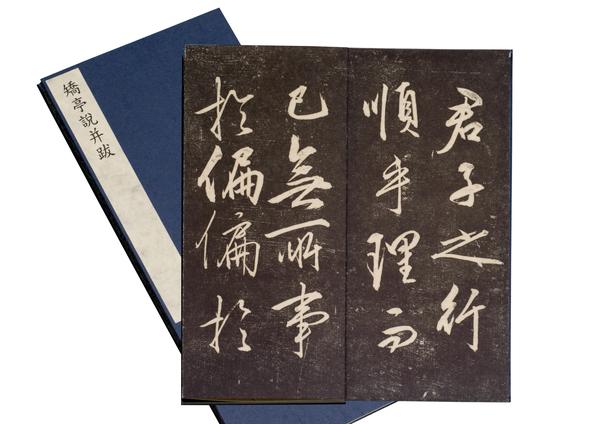 矯亭說并跋
君子之行
順乎理而
已無所事
於偏偏於